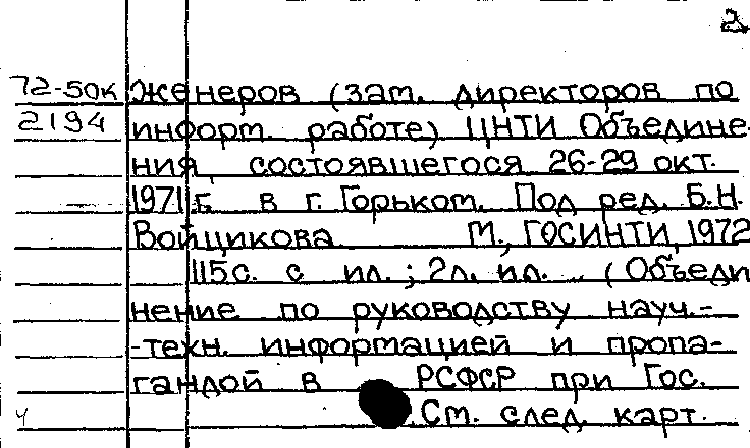 2
72-50к женеров (зам. директоров по
2194 информ. работе) ЦНТИ Объедине-
ния, состоявшегося 26-29 окт.
1971 г. в г. Горьком. Под ред. Б.Н.
Войщикова М., ГОСИНТИ, 1972
115с. с ил.; 2л. ил. (Объеди
нение по руководству науч.-
-техн. информацией и пропа-
гандой в РСФСР при Гос.
См. след. карт.